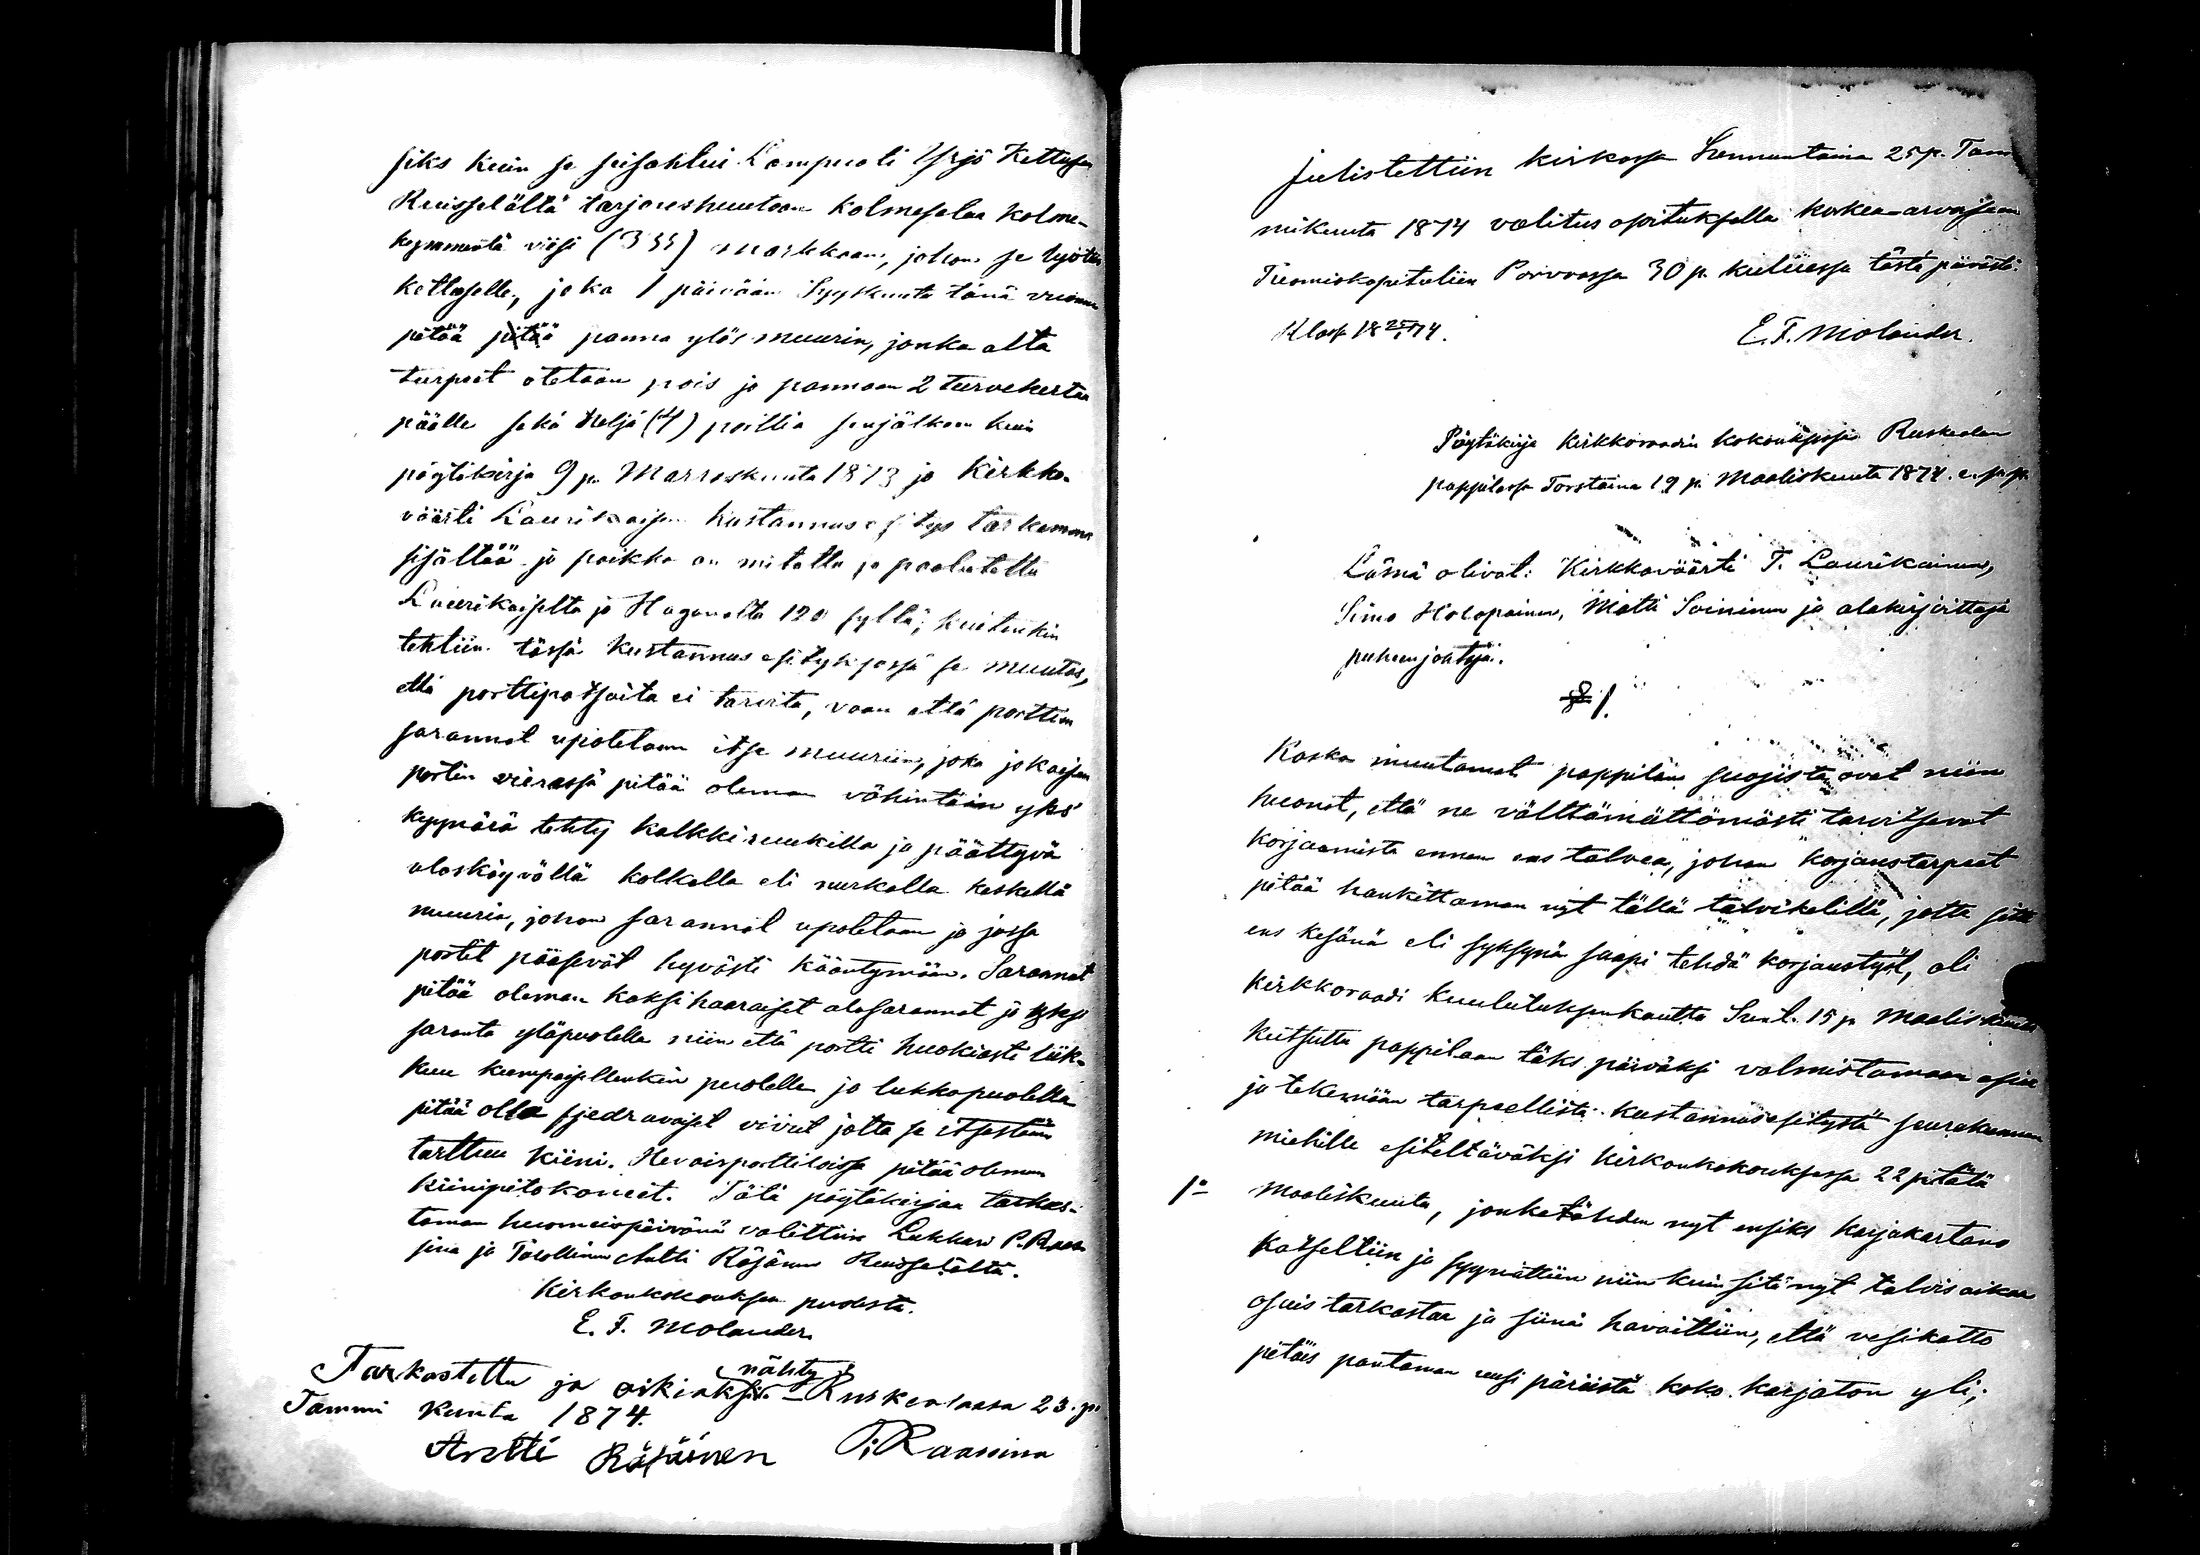 siks kuin se seisahtui Lampuoti Yrjö Kettusen
Ruisselältä tarjoushuutoon kolmesataa kolme-
kymmentä viisi (335) markkaan, johon se lyötiin
kettuselle, joka 1 päivään Syyskuuta tänä vuonna
pitää pitää panna ylös muurin, jonka alta
turpeet otetaan pois ja pannaan 2 turvekertaa
päälle sekä neljä (4) porttia senjälkeen kuin
pöytäkirja 9 p. Marraskuuta 1873 ja Kirkko-
väärti Laurikaisen kustannusesitys tarkemmin
sisältää ja paikka on mitattu ja paalutettu
Laurikaiselta ja Haganolta 120 syltä; kuitenkin
tehtiin tässä kustannusesityksessä se muutos,
että porttipatsaita ei tarvita, vaan että porttien
sarannat upotetaan itse muuriin, joka jokaisen
portin vieressä pitää oleman vähintään yks
kyynärä tehty kalkkiruukilla ja päättyvä
uloskäyvällä kolkalla eli nurkalla keskellä
muuria, johon sarannat upotetaan ja jossa
portit pääsevät hyvästi kääntymään. Sarannat
pitää oleman kaksihaaraiset alasarannat ja yksi
saranta yläpuolella niin että portti huokiasti liik-
kuu kumpaisellenkin puolelle ja lukkopuolella
pitää olla fjedravaiset vivut jotta se itsestään
tarttuu kiini. Hevoisporttiloissa pitää oleman
kiinipitokoneet. Tätä pöytäkirjaa tarkas-
taman huomeispäivänä valittiin Lukkari P. Raas-
sina ja Talollinen Antti Räsänen Ruisselältä.
Kirkonkokouksen puolesta.
E. F. Molander.
Tarkastettu ja oikiaksi nähty Ruskealassa 23. p.
Tammi kuuta 1874.
Antti Räsäinen P. Raassina
Julistettiin kirkossa Sunnuntaina 25 p. Tam-
mikuuta 1874 valitus opituksella korkea-arvoiseen
Tuomiokapituliin Porvoossa 30 p. kuluessa tästä päivästä.
E. F. Molander.
Pöytäkirja Kirkkoraadin kokouksessa Ruskealan
pappilassa Torstaina 19 p. Maaliskuuta 1874. e. p. p.
Läsnä olivat: Kirkkoväärti T. Laurikainen,
Simo Holopainen, Matti Soininen ja alakirjoittaja
puheenjohtaja.
§ 1.
Koska muutamat pappilan suojista ovat niin
huonot, että ne välttämättömästi tarvitsevat
korjaamista ennen ens talvea, johon korjaustarpeet
pitää hankittaman nyt tällä talvikelillä, jotta sitte
ens kesänä eli syksynä saapi tehdä korjaustyöt, oli
Kirkkoraadi kuulutuksenkautta Sunt. 15 p. Maaliskuuta
kutsuttu pappilaan täks päiväksi valmistamaan asiaa
ja tekemään tarpeellista kustannusesitystä seurakunnan
miehille esiteltäväksi Kirkonkokouksessa 22 p tätä
1o Maaliskuuta, jonketähden nyt ensiks karjakartano
katseltiin ja syynättiin niin kuin sitä nyt talvisaikaan
osais tarkastaa ja siinä havaittiin, että vesikatto
pitäis pantaman uusi päreistä koko karjaton yli;